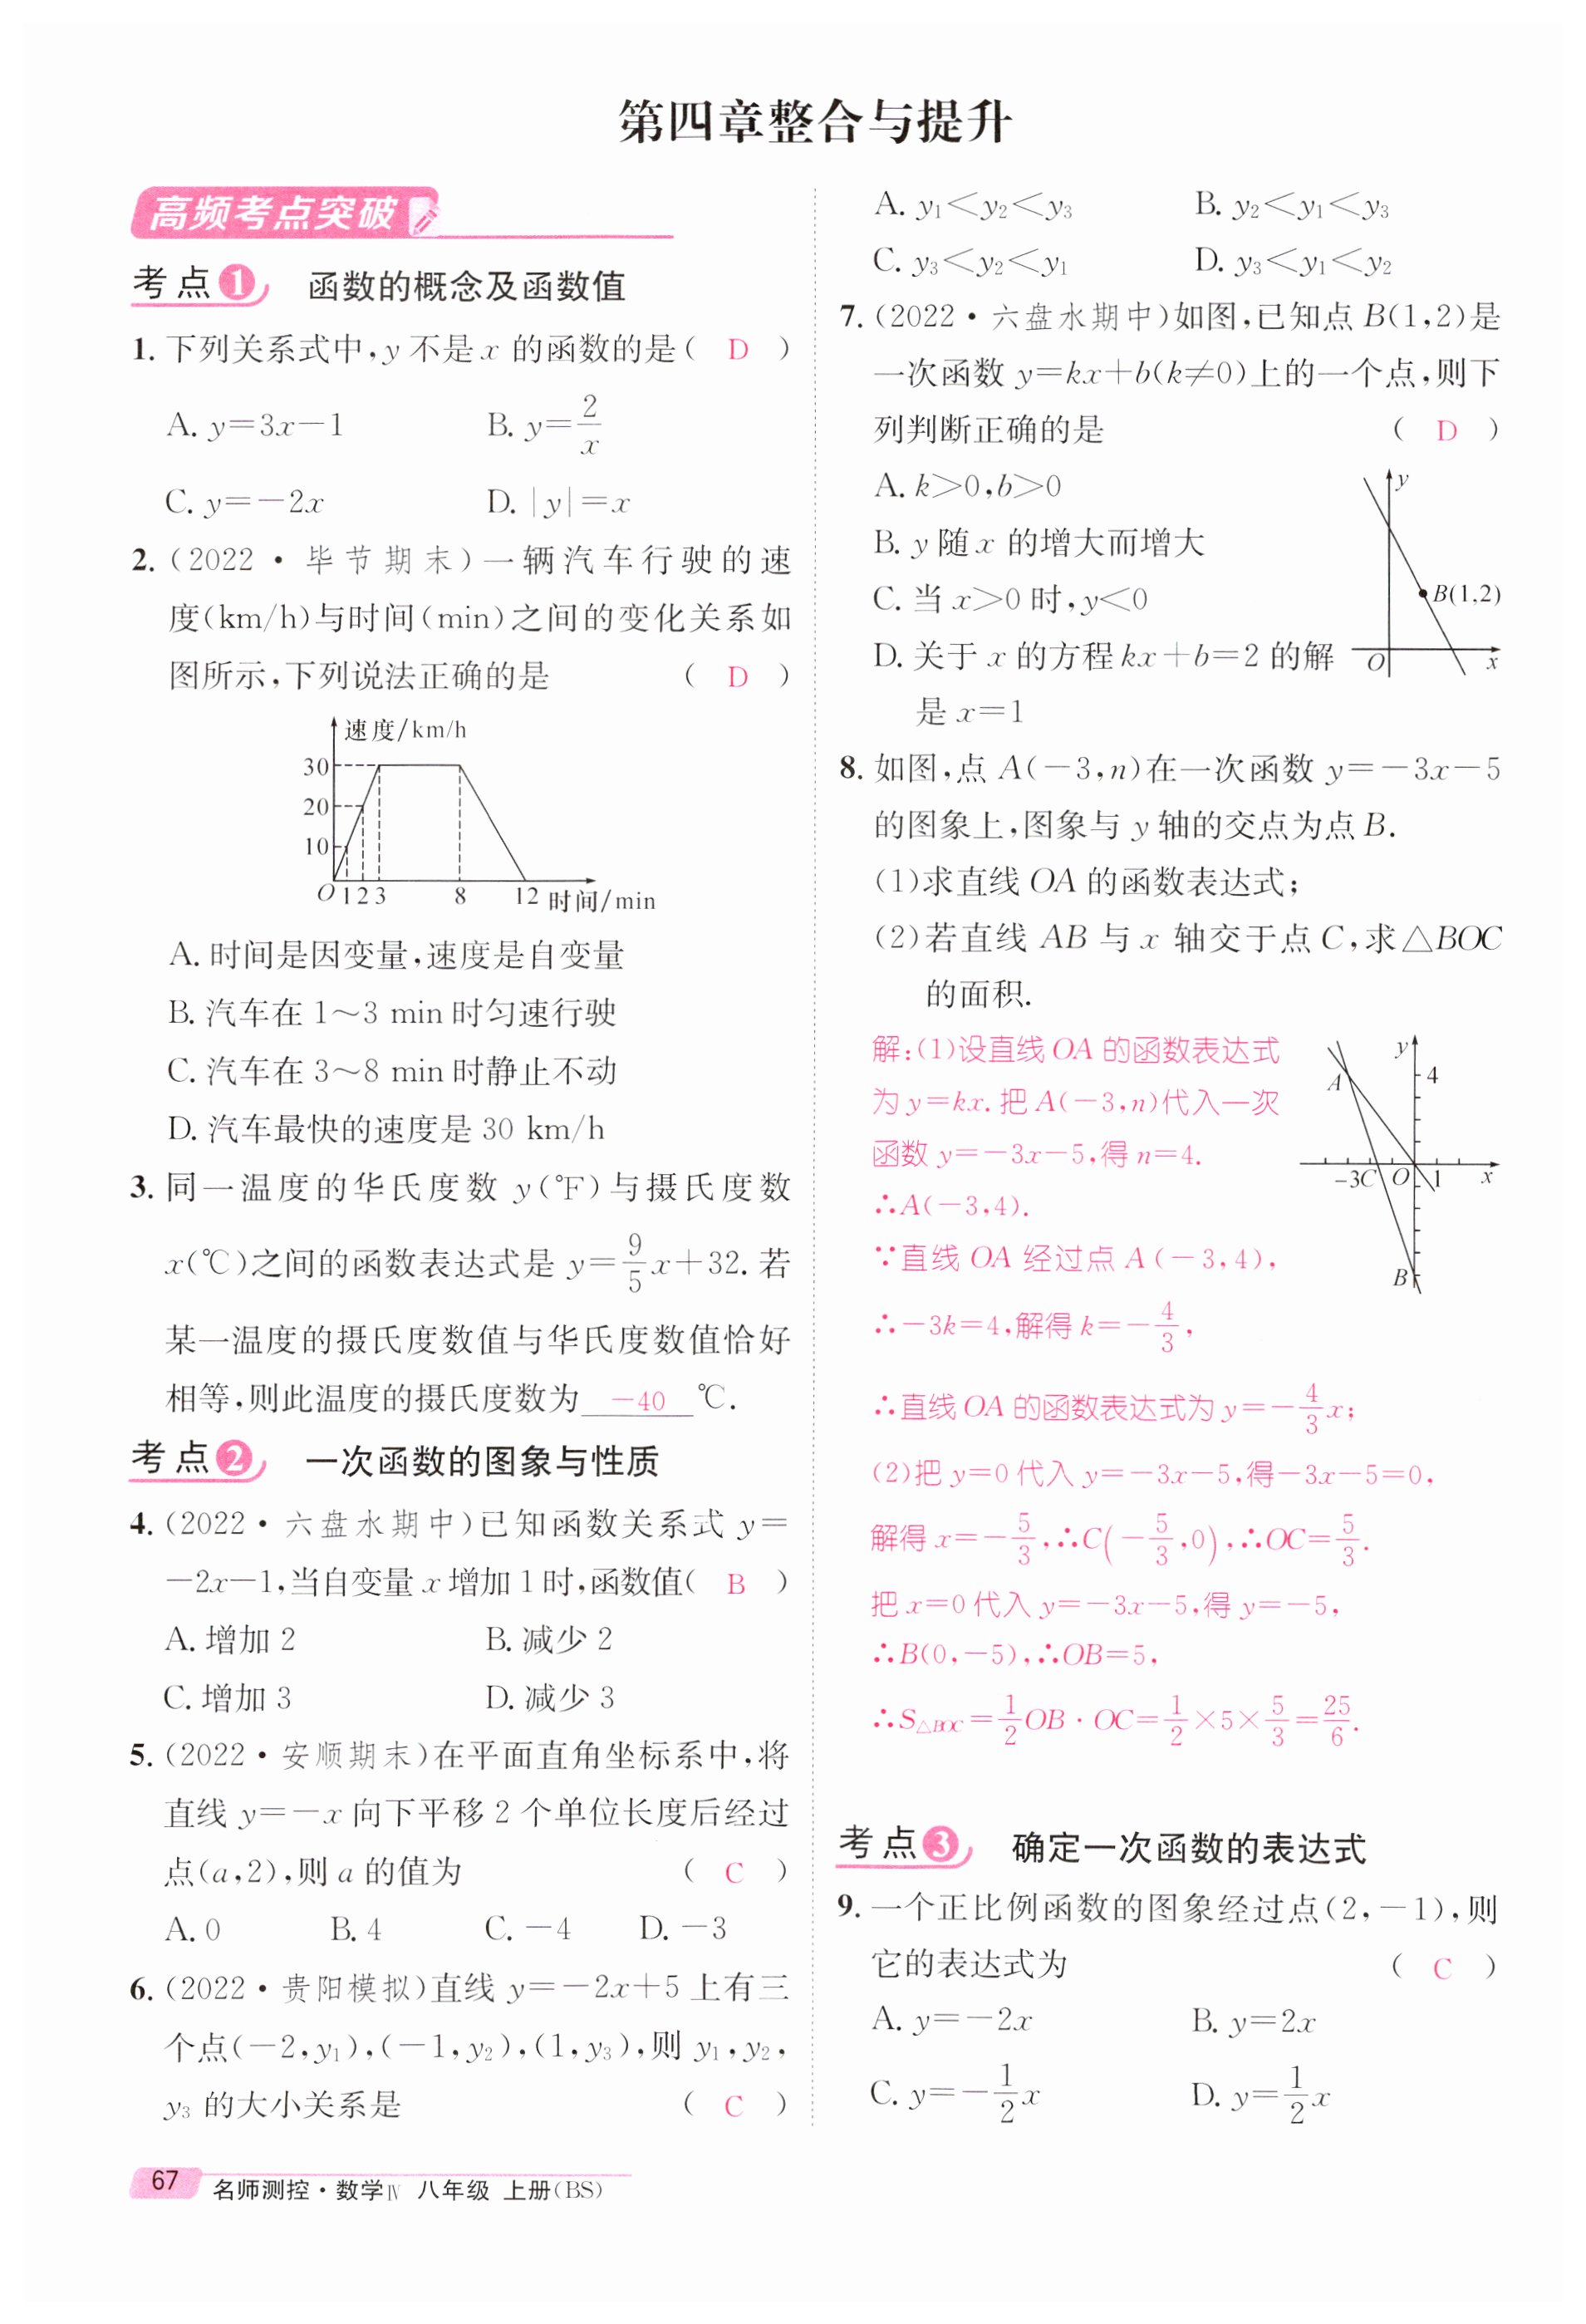 第四章整合与提升
高频考点突破
考点1 函数的概念及函数值
1. 下列关系式中,y 不是 x 的函数的是( D )
A. y=3x-1 B. y=2/x
C. y=-2x D. |y|=x
2. (2022·毕节期末)一辆汽车行驶的速
度(km/h)与时间(min)之间的变化关系如
图所示,下列说法正确的是 ( D )
速度/km/h
30
20
10
O 1 2 3 8 12 时间/min
A. 时间是因变量,速度是自变量
B. 汽车在 1～3 min 时匀速行驶
C. 汽车在 3～8 min 时静止不动
D. 汽车最快的速度是 30 km/h
3. 同一温度的华氏度数 y(℉)与摄氏度数
x(℃)之间的函数表达式是 y=9/5x+32. 若
某一温度的摄氏度数值与华氏度数值恰好
相等,则此温度的摄氏度数为 -40 ℃.
考点2 一次函数的图象与性质
4. (2022·六盘水期中)已知函数关系式 y=
-2x-1,当自变量 x 增加 1 时,函数值( B )
A. 增加 2 B. 减少 2
C. 增加 3 D. 减少 3
5. (2022·安顺期末)在平面直角坐标系中,将
直线 y=-x 向下平移 2 个单位长度后经过
点(a,2),则 a 的值为 ( C )
A. 0 B. 4 C. -4 D. -3
6. (2022·贵阳模拟)直线 y=-2x+5 上有三
个点(-2,y₁),(-1,y₂),(1,y₃),则 y₁,y₂,
y₃ 的大小关系是 ( C )
A. y₁<y₂<y₃ B. y₂<y₁<y₃
C. y₃<y₂<y₁ D. y₃<y₁<y₂
7. (2022·六盘水期中)如图,已知点 B(1,2)是
一次函数 y=kx+b(k≠0)上的一个点,则下
列判断正确的是 ( D )
A. k>0,b>0
B. y 随 x 的增大而增大
C. 当 x>0 时,y<0
D. 关于 x 的方程 kx+b=2 的解
是 x=1
y
B(1,2)
O x
8. 如图,点 A(-3,n)在一次函数 y=-3x-5
的图象上,图象与 y 轴的交点为点 B.
(1)求直线 OA 的函数表达式;
(2)若直线 AB 与 x 轴交于点 C,求△BOC
的面积.
解:(1)设直线 OA 的函数表达式
为 y=kx. 把 A(-3,n)代入一次
函数 y=-3x-5,得 n=4.
∴A(-3,4).
∵直线 OA 经过点 A(-3,4),
∴-3k=4,解得 k=-4/3,
∴直线 OA 的函数表达式为 y=-4/3x;
(2)把 y=0 代入 y=-3x-5,得-3x-5=0,
解得 x=-5/3,∴C(-5/3,0),∴OC=5/3.
把 x=0 代入 y=-3x-5,得 y=-5,
∴B(0,-5),∴OB=5,
∴S△BOC=1/2OB·OC=1/2×5×5/3=25/6.
y
A 4
-3C O 1 x
B
考点3 确定一次函数的表达式
9. 一个正比例函数的图象经过点(2,-1),则
它的表达式为 ( C )
A. y=-2x B. y=2x
C. y=-1/2x D. y=1/2x
67 名师测控·数学Ⅳ 八年级 上册(BS)